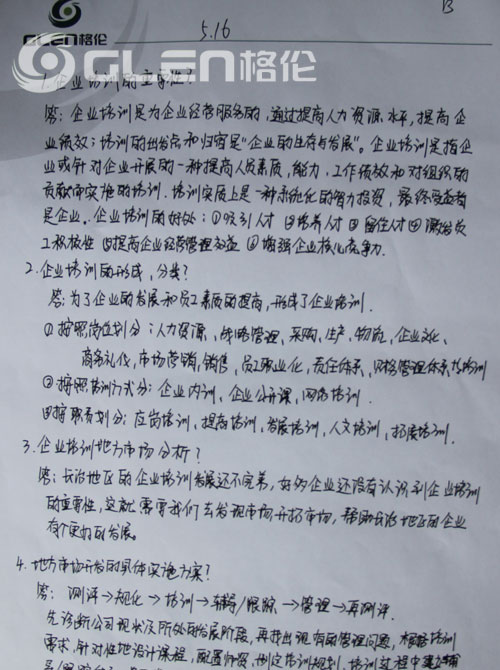 GLEN格伦
GLEN格伦
B
5.16
1. 企业培训的重要性?
答: 企业培训是为企业经营服务的, 通过提高人力资源水平, 提高企
业绩效; 培训的出发点和归宿是"企业的生存与发展"。企业培训是指企
业或针对企业开展的一种提高人员素质, 能力, 工作绩效和对组织的
贡献而实施的培训. 培训实质上是一种系统化的智力投资, 最终受益者
是企业. 企业培训的好处: ①吸引人才 ②培养人才 ③留住人才 ④激发员
工积极性 ⑤提高企业经营管理效益 ⑥增强企业核心竞争力.
2. 企业培训的形成, 分类?
答: 为了企业的发展和员工素质的提高, 形成了企业培训.
①按照岗位划分: 人力资源、战略管理、采购、生产、物流、企业文化、
商务礼仪, 市场营销, 销售, 员工职业化, 责任体系、财务管理体系培训
②按照培训方式分: 企业内训, 企业公开课, 网络培训.
③按职责划分: 应岗培训, 提高培训, 发展培训, 人文培训, 拓展培训.
3. 企业培训地方市场分析?
答: 长治地区的企业培训发展还不完善, 好多企业还没有认识到企业培训
的重要性, 这就需要我们去发现市场开拓市场, 帮助长治地区的企业
有个更好的发展。
4. 地方市场开发的具体实施方案?
答: 测评→规化→培训→辅导/跟踪→管理→再测评.
先诊断公司现状及所处的发展阶段, 再找出现有的管理问题, 根据培训
需求, 针对性地设计课程, 配置师资, 制定培训规划, 培训过程中要